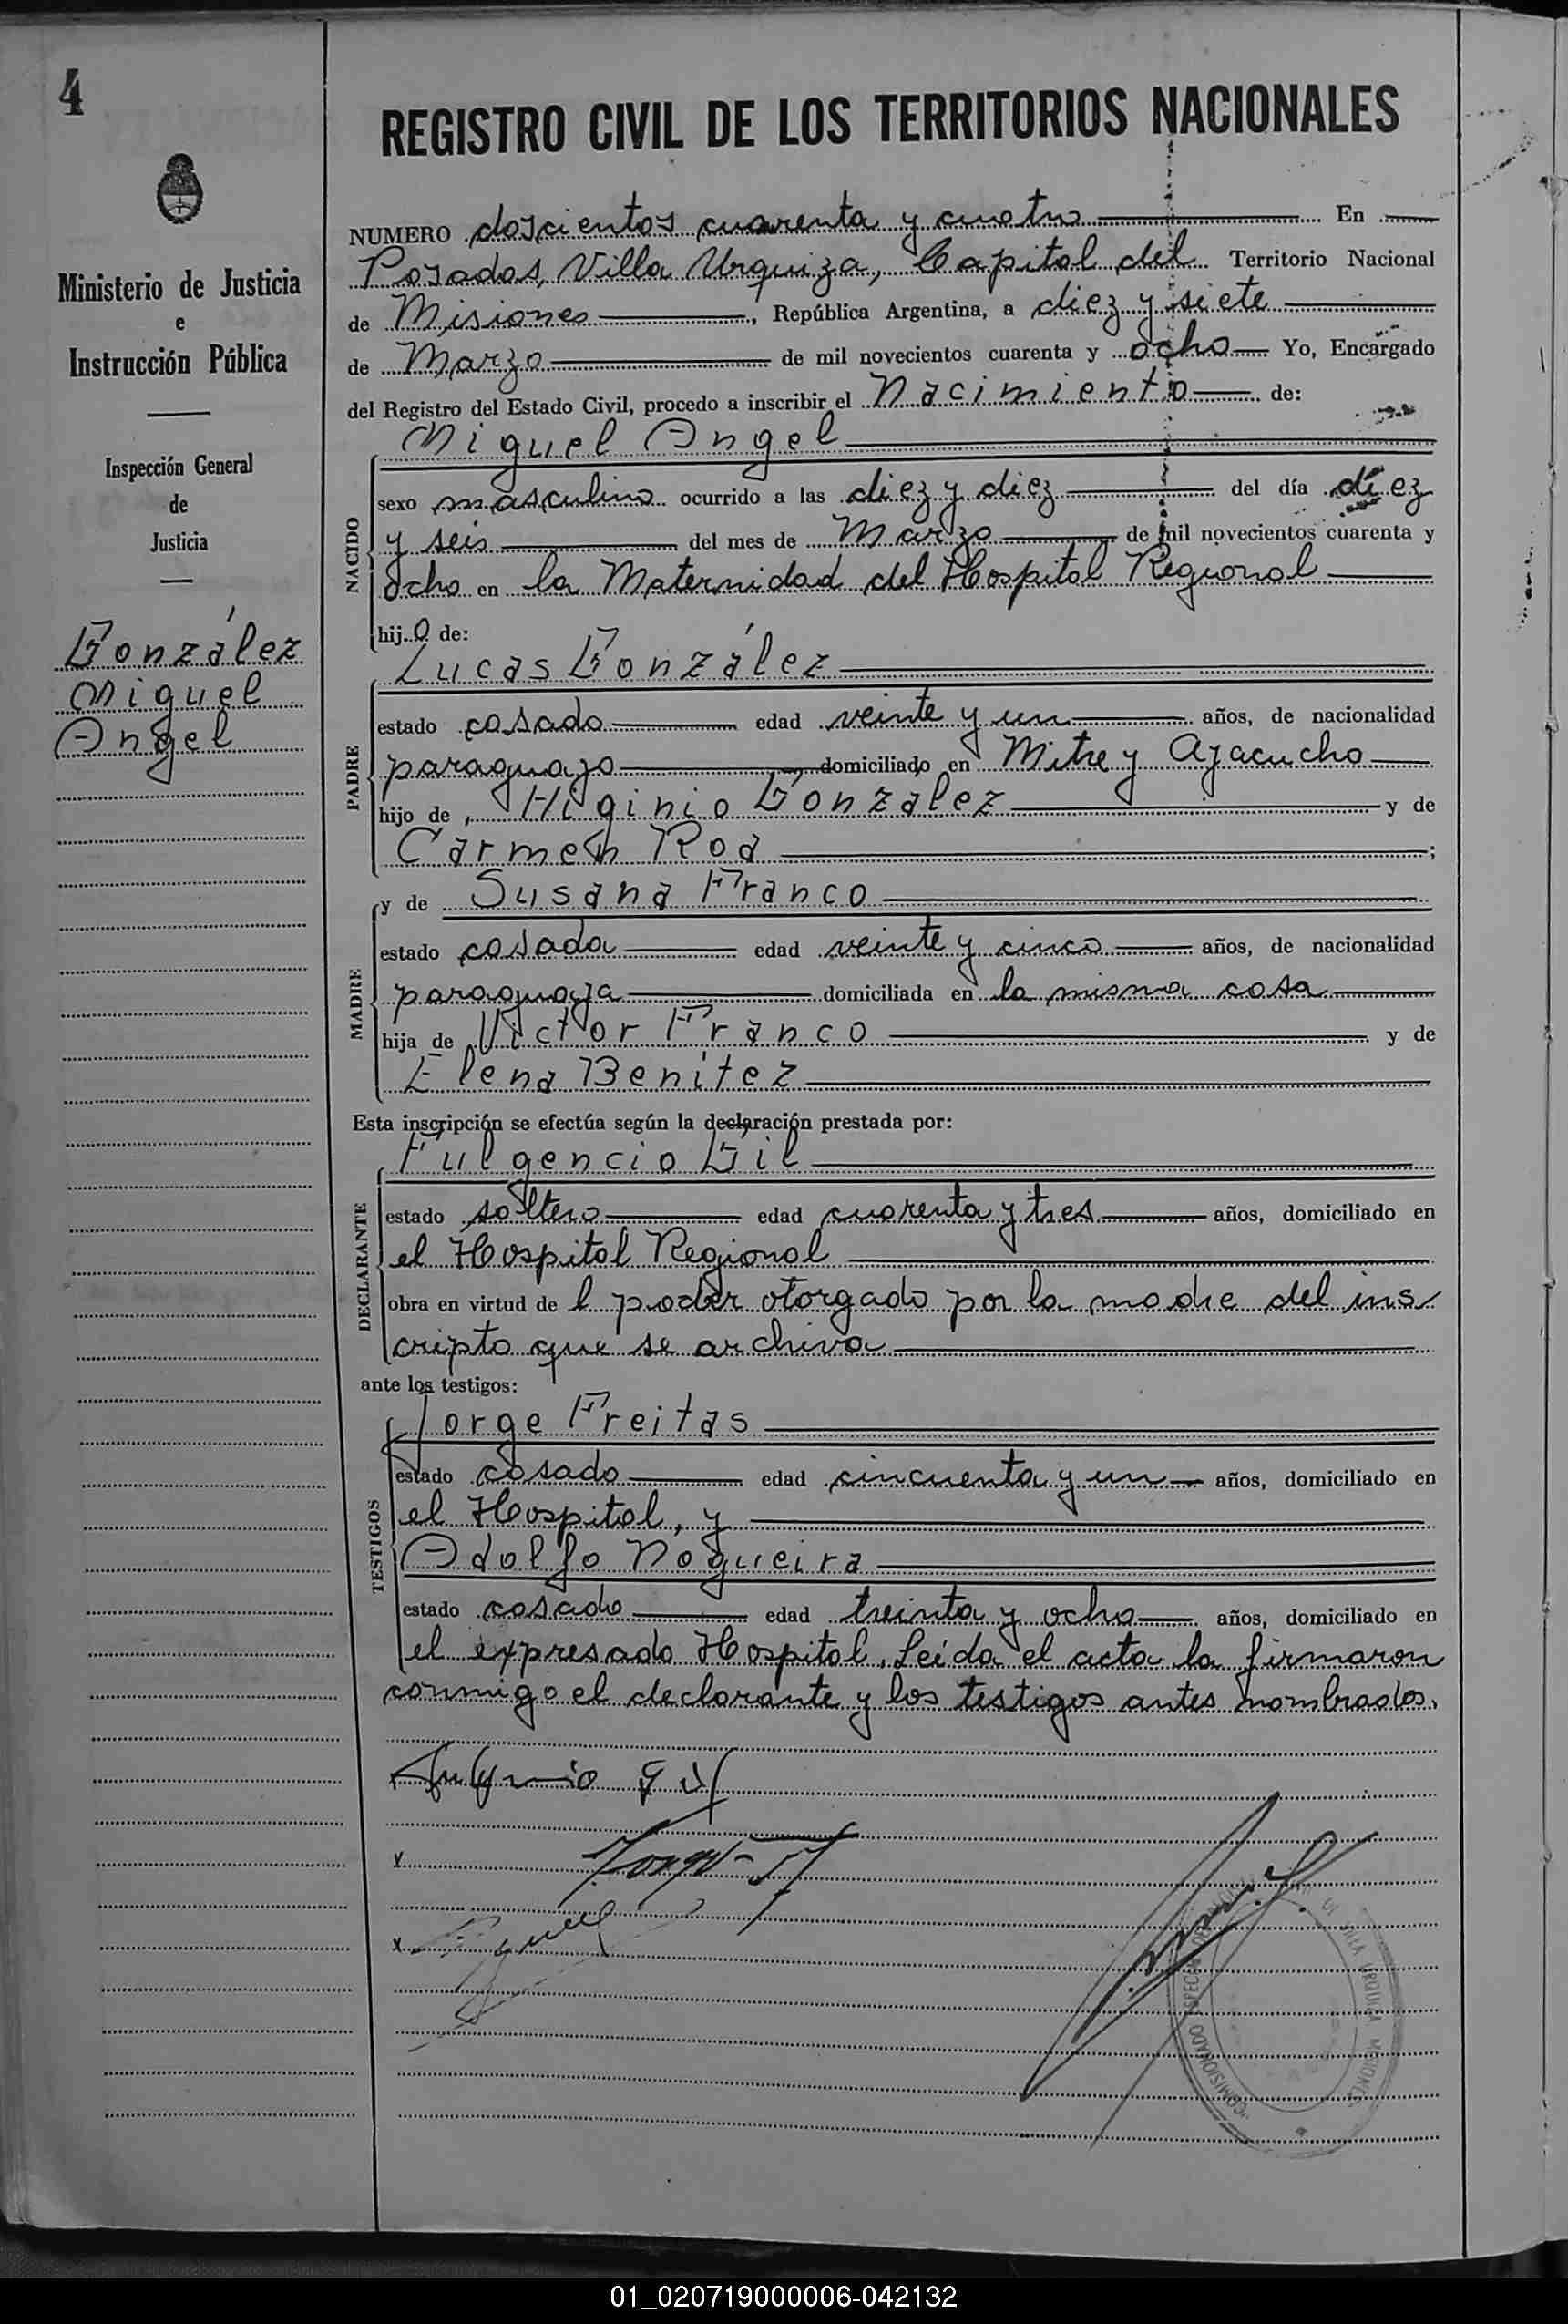 4
REGISTRO CIVIL DE LOS TERRITORIOS NACIONALES
Ministerio de Justicia
e
Instrucción Pública
Inspección General
de
Justicia
González
Miguel
Angel
NUMERO doscientos cuarenta y cuatro En
Posadas, Villa Urquiza, Capital del Territorio Nacional
de Misiones, República Argentina, a diez y siete
de Marzo de mil novecientos cuarenta y ocho Yo, Encargado
del Registro del Estado Civil, procedo a inscribir el Nacimiento de:
Miguel Angel
NACIDO
sexo masculino ocurrido a las diez y diez del día diez
y seis del mes de Marzo de mil novecientos cuarenta y
ocho en la Maternidad del Hospital Regional
hijo de:
Lucas González
PADRE
estado casado edad veinte y un años, de nacionalidad
paraguayo domiciliado en Mitre y Ayacucho
hijo de Higinio González y de
Carmen Roa;
y de Susana Franco
MADRE
estado casada edad veinte y cinco años, de nacionalidad
paraguaya domiciliada en la misma casa
hija de Victor Franco y de
Elena Benitez
Esta inscripción se efectúa según la declaración prestada por:
Fulgencio Gil
DECLARANTE
estado soltero edad cuarenta y tres años, domiciliado en
el Hospital Regional
obra en virtud de l poder otorgado por la madre del ins
cripto que se archiva
ante los testigos:
Jorge Freitas
TESTIGOS
estado casado edad cincuenta y un años, domiciliado en
el Hospital, y
Adolfo Nogueira
estado casado edad treinta y ocho años, domiciliado en
el expresado Hospital. Leída el acta la firmaron
conmigo el declarante y los testigos antes nombrados.
Fulgencio Gil
x
x
COMISIONADO ESPECIAL VILLA URQUIZA MISIONES
01_020719000006-042132